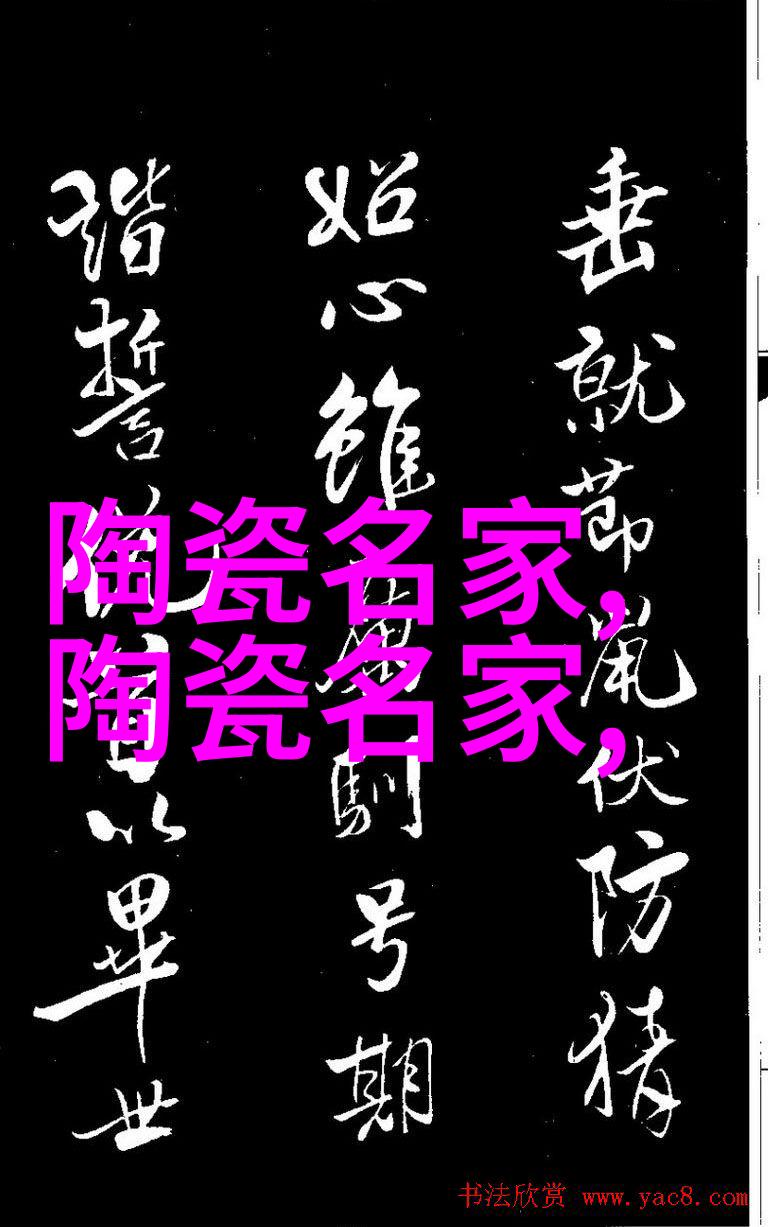 垂就莭鼠伏防猜
妬心雖馴号期
谐誓以畢世
陶瓷名家,
陶瓷名家,
书法欣赏 www.yac8.com